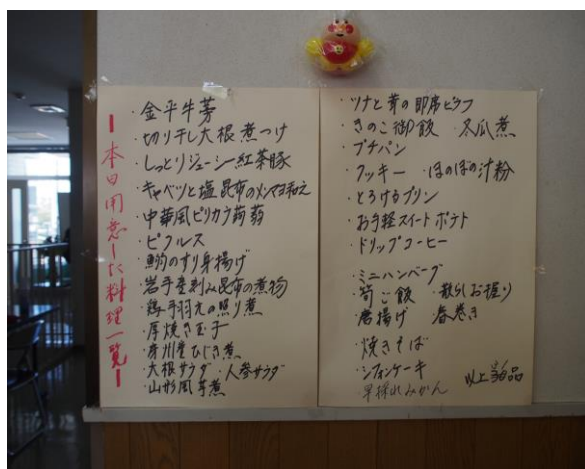 ー本日用意した料理一覧ー
・金平牛蒡
・切り干し大根煮つけ
・しっとりジューシー紅茶豚
・キャベツと塩昆布のツナマヨ和え
・中華風ピリカラ蒟蒻
・ピクルス
・鰯のすり身揚げ
・岩手産刻み昆布の煮物
・鶏手羽元の照り煮
・厚焼き玉子
・房州産ひじき煮
・大根サラダ ・人参サラダ
・山形風芋煮
・ツナと茸の即席ピラフ
・きのこ御飯 ・冬瓜煮
・プチパン
・クッキー ・ほのぼの汁粉
・とろけるプリン
・お手軽スイートポテト
・ドリップコーヒー
・ミニハンバーグ
・筍ご飯 ・散らしお握り
・唐揚げ ・春巻き
・焼きそば
・シフォンケーキ
・早採れみかん 以上 品